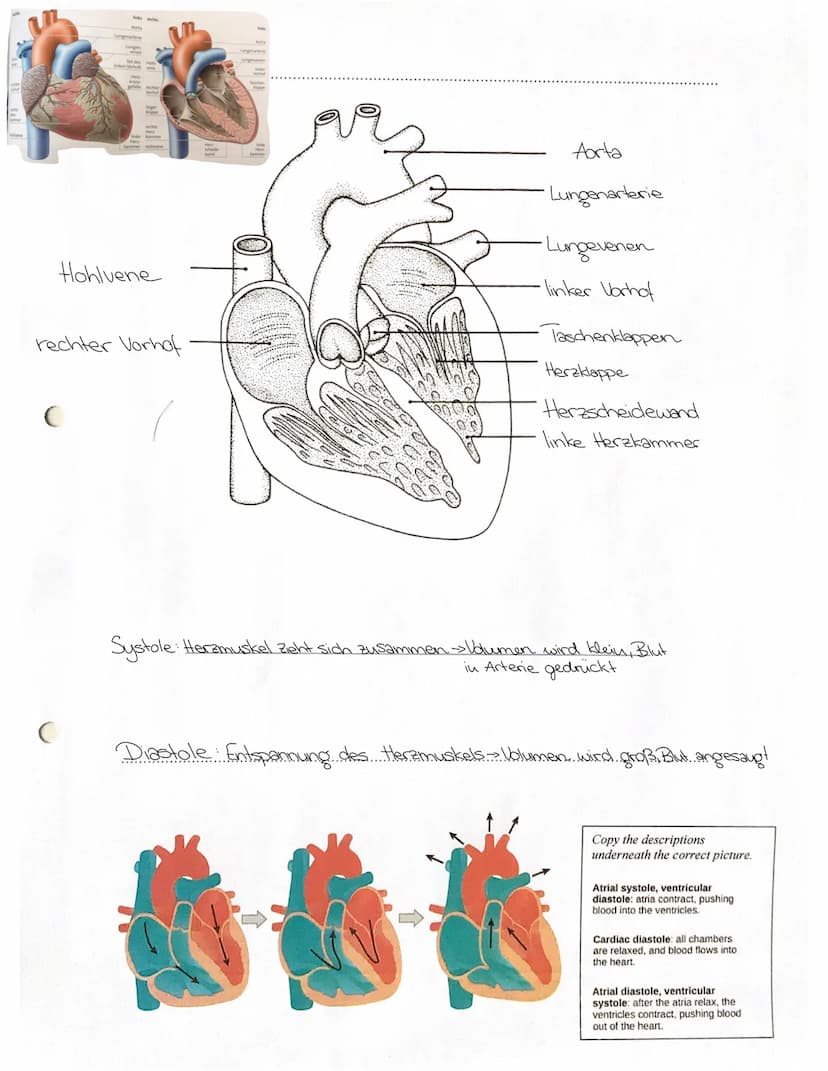 Aorta
Lungenarterie
Lungevenen
linker Vorhof
Taschenklappen
Herzklappe
Herzscheidewand
linke Herzkammer
Hohlvene
rechter Vorhof
Systole: Herzmuskel zieht sich zusammen → Volumen wird klein, Blut
in Arterie gedrückt
Diastole: Entspannung des Herzmuskels → Volumen wird groß, Blut angesaugt
Copy the descriptions
underneath the correct picture.
Atrial systole, ventricular
diastole: atria contract, pushing
blood into the ventricles.
Cardiac diastole: all chambers
are relaxed, and blood flows into
the heart.
Atrial diastole, ventricular
systole: after the atria relax, the
ventricles contract, pushing blood
out of the heart.